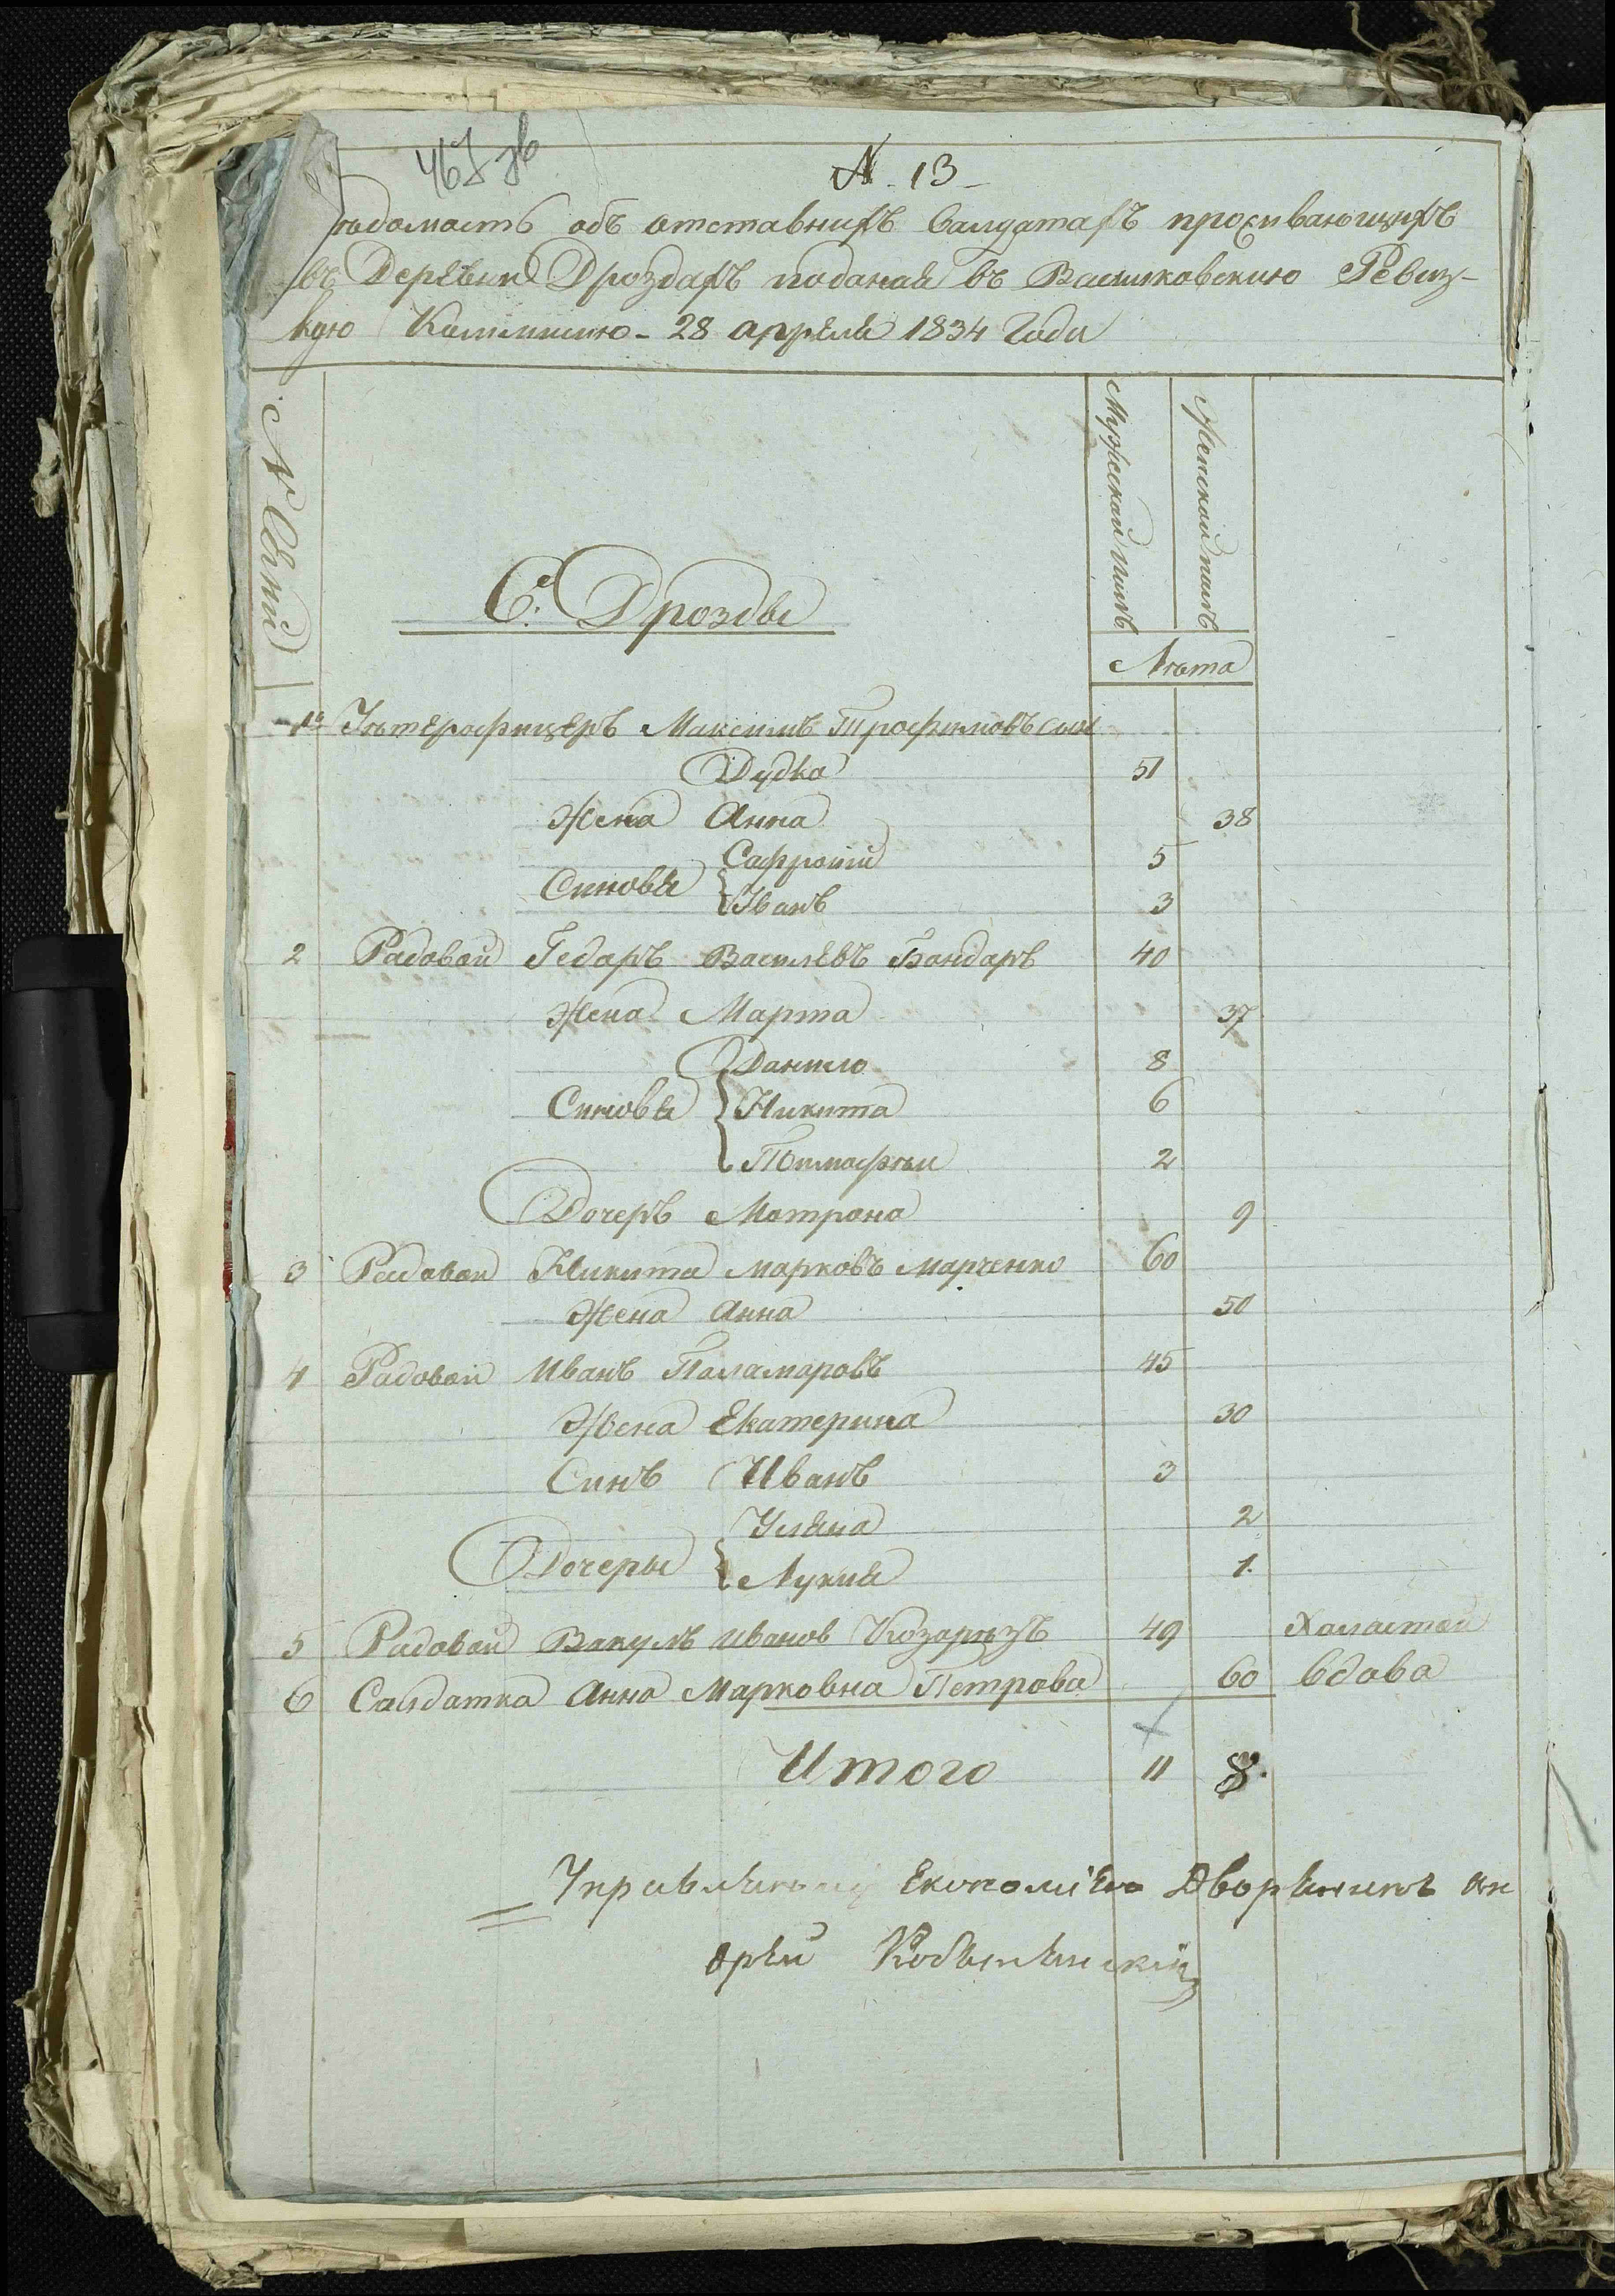 467 зв
№ 13
Вѣдомасть объ отставнихъ Салдатахъ проживающихъ
въ Деревни Дроздахъ поданая въ Васильковскию Ревиз-
кую Коммисию - 28 апреля 1834 Года
№ Семий
Мужеской полъ
Женской полъ
Се: Дрозды
Лѣта
1й Унтерофицеръ Максимъ Трофимовъ сын
Дудка 51
Жена Анна 38
Сафроний 5
Синовя
Иванъ 3
2 Радовой Федоръ Василевъ Бондаръ 40
Жена Марта 37
Данило 8
Синовя Никита 6
Тимофѣй 2
Дочеръ Мотрона 9
3 Радовой Никита Марковъ Марченко 60
Жена Анна 50
4 Радовой Иванъ Паламаровъ 45
Жена Екатерина 30
Синъ Иванъ 3
Уляна 2
Дочеры
Лукия 1.
5 Радовой Вакулъ Иванов Козарѣзъ 49 Халастой
6 Салдатка Анна Марковна Петрова 60 вдова
Итого 11 8.
Економіею Дворянинъ Ан
дрей Кобылянский